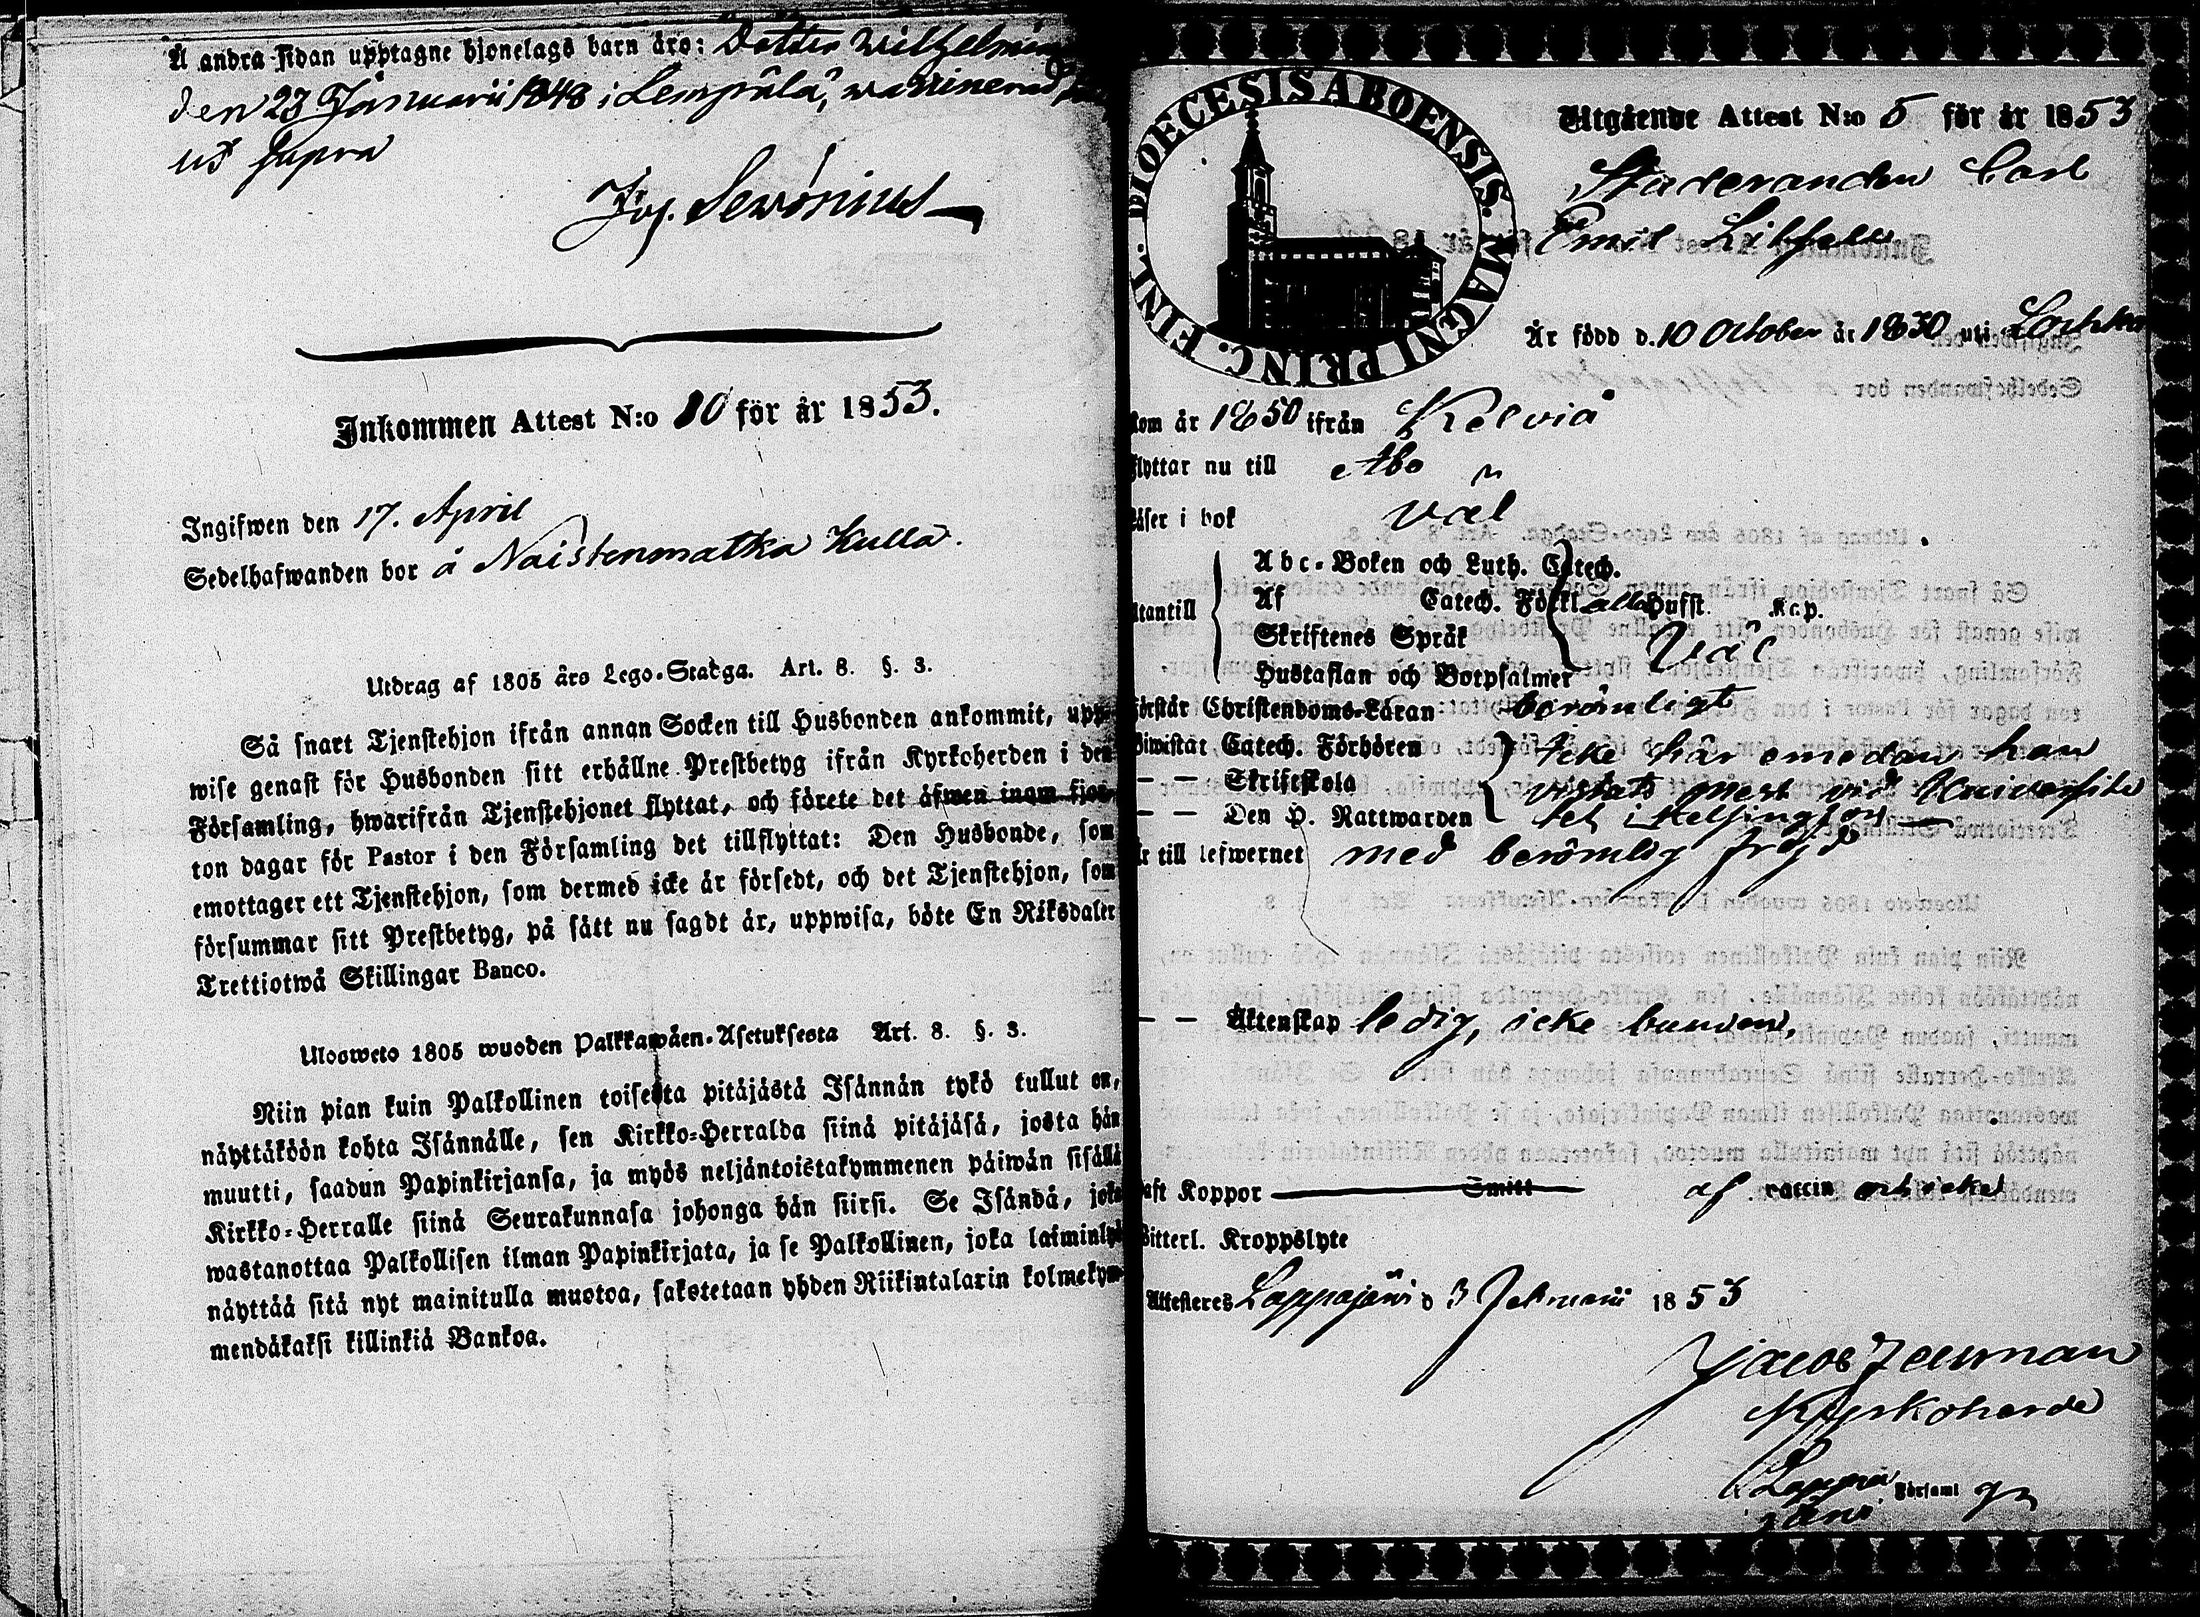 Å andra sidan upptagne hjonelags barn äro: Dotter Wilhelmina
den 23 Januarii 1848 i Lempälä, vaccinerad
ut supra
Jos. Sewonius
Inkommen Attest N:o 10 för år 1853.
Ingifwen den 17. April
Sedelhafwanden bor å Naistenmatka Kulla.
Utdrag af 1805 års Lego-Stadga. Art. 8. §. 3.
Så snart Tjenstehjon ifrån annan Socken till Husbonden ankommit, upp-
wise genast för Husbonden sitt erhållne Prestbetyg ifrån Kyrkoherden i den
Församling, hwarifrån Tjenstehjonet flyttat, och förete det äfwen inom fjor-
ton dagar för Pastor i den Församling det tillflyttat: Den Husbonde, som
emottager ett Tjenstehjon, som dermed icke är försedt, och det Tjenstehjon, som
försummar sitt Prestbetyg, på sätt nu sagdt är, uppwisa, böte En Riksdaler
Trettiotwå Skillingar Banco.
Ulosweto 1805 wuoden Palkkawäen-Asetuksesta Art. 8. §. 3.
Niin pian kuin Palkollinen toisesta pitäjästä Isännän tykö tullut on,
näyttäköön kohta Isännälle, sen Kirkko-Herralda siinä pitäjäsä, josta hän
muutti, saadun Papinkirjansa, ja myös neljäntoistakymmenen päiwän sisällä
Kirkko-Herralle siinä Seurakunnasa johonga hän siirsi. Se Isändä, joka
wastanottaa Palkollisen ilman Papinkirjata, ja se Palkollinen, joka laiminlyö
näyttää sitä nyt mainitulla muotoa, sakotetaan yhden Riikintalarin kolmekym-
mendäkaksi killinkiä Bankoa.
DIOECESIS ABOENSIS. MAGNI PRINC. FINL.
Utgående Attest N:o 5 för år 1853
Studeranden Carl
Emil
Är född d. 10 October år 1830 uti
kom år 1850 ifrån Kelviå
flyttar nu till Åbo
läser i bok väl
Abc-Boken och Luth. Catech.
utantill Af Catech. Förkl. alla Hufst. Kap.
Skriftenes Språk Väl
Hustaflan och Botpsalmer
förstår Christendoms-Läran berömligt
biwistat Catech. Förhören icke här emedan han
— — Skriftskola vistats mest vid Universite
— — Den H. Nattwarden tet i Helsingfors —
är till lefwernet med berömlig frejd
— — Äktenskap ledig, icke bunden,
haft Koppor Smitt af vaccin och icke
Witterl. Kroppslyte
Attesteres Lappajärvi d 3 Februarii 1853
Jacob
Kyrkoherde
Lappa
järvi Församl g